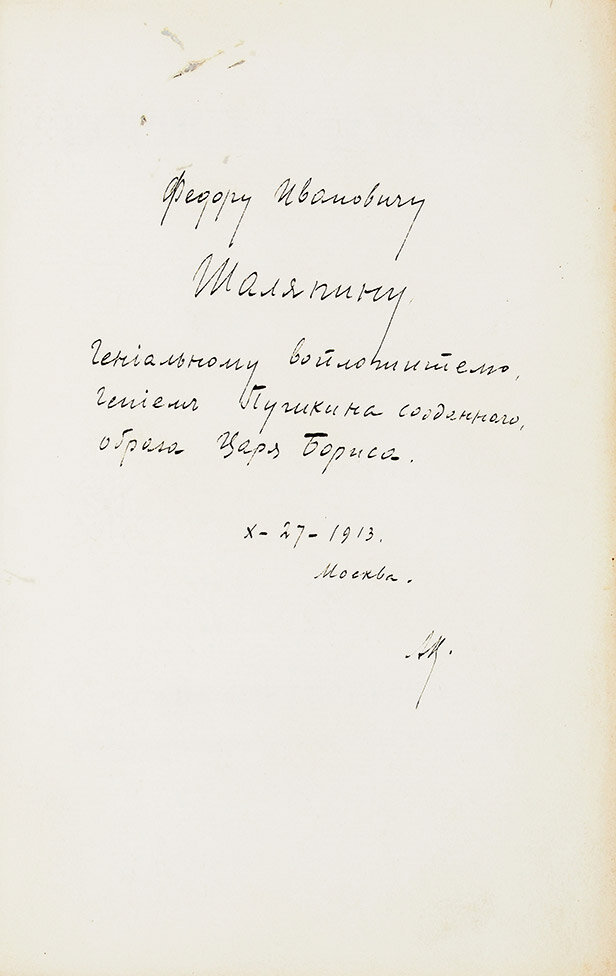 Федору Ивановичу
Шаляпину.
Генiальному воплотителю,
Генiемъ Пушкина созданнаго,
образа Царя Бориса.
X - 27 - 1913.
Москва.
АК.